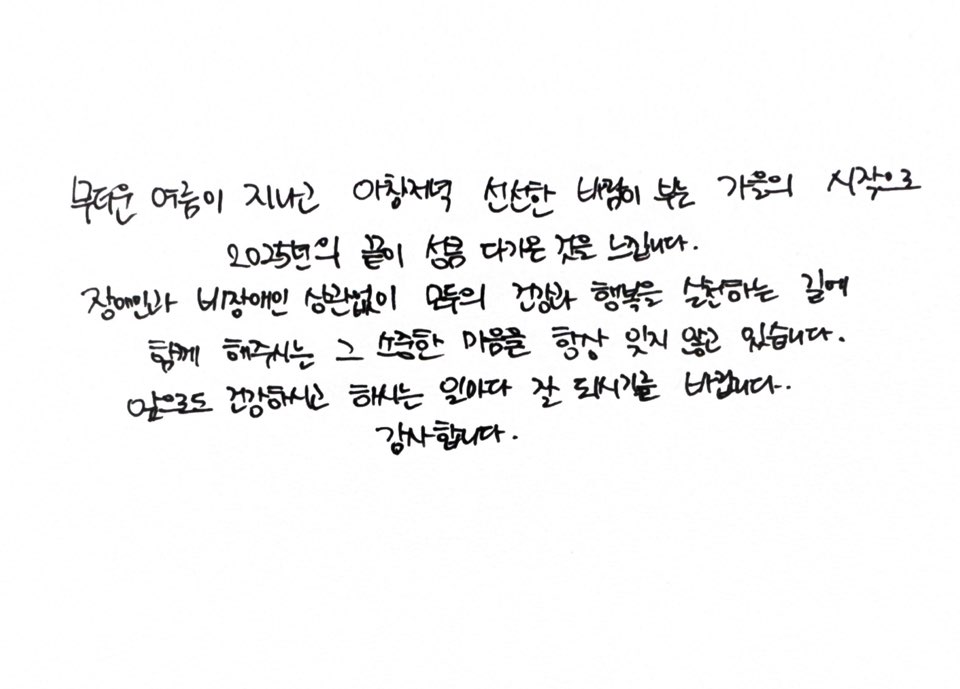 무더운 여름이 지나고 아침저녁 선선한 바람이 부는 가을의 시작으로
2025년의 끝이 성큼 다가온 것을 느낍니다.
장애인과 비장애인 상관없이 모두의 건강과 행복을 실천하는 길에
함께 해주시는 그 소중한 마음을 항상 잊지 않고 있습니다.
앞으로도 건강하시고 하시는 일마다 잘 되시기를 바랍니다..
감사합니다.